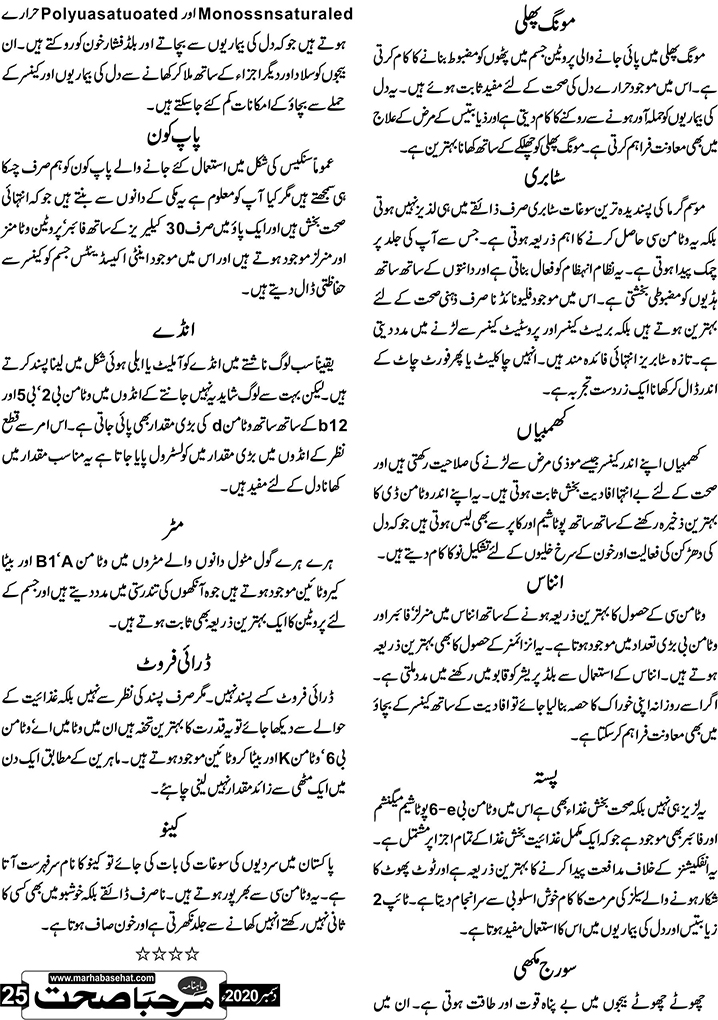 مونگ پھلی
مونگ پھلی میں پائی جانے والی پروٹین جسم میں پٹھوں کو مضبوط بنانے کا کام کرتی
ہے۔ اس میں موجود حرارے دل کی صحت کے لئے مفید ثابت ہوئے ہیں۔ یہ دل
کی بیماریوں کو حملہ آور ہونے سے روکنے کا کام دیتی ہے اور ذیابیتیس کے مرض کے علاج
میں بھی معاونت فراہم کرتی ہے۔ مونگ پھلی کو چھلکے کے ساتھ کھانا بہترین ہے۔
سٹابری
موسم گرما کی پسندیدہ ترین سوغات سٹابری صرف ذائقے میں ہی لذیز نہیں ہوتی
بلکہ یہ وٹامن سی حاصل کرنے کا اہم ذریعہ ہوتی ہے۔ جس سے آپ کی جلد پر
چمک پیدا ہوتی ہے۔ یہ نظام انہظام کو فعال بناتی ہے اور دانتوں کے ساتھ ساتھ
ہڈیوں کو مضبوطی بخشتی ہے۔ اس میں موجود فلیونائڈ نا صرف ذہنی صحت کے لئے
بہترین ہوتے ہیں بلکہ بریسٹ کینسر اور پروسٹیٹ کینسر سے لڑنے میں مدد دیتی
ہے۔ تازہ سٹابریز انتہائی فائدہ مند ہیں۔ انہیں چاکلیٹ یا پھر فورٹ چاٹ کے
اندر ڈال کر کھانا ایک زردست تجربہ ہے۔
کھمبیاں
کھمبیاں اپنے اندر کینسر جیسے موذی مرض سے لڑنے کی صلاحیت رکھتی ہیں اور
صحت کے لئے بے انتہا افادیت بخش ثابت ہوتی ہیں۔ یہ اپنے اندر وٹامن ڈی کا
بہترین ذخیرہ رکھنے کے ساتھ ساتھ پوٹاشیم اور کاپر سے بھی لیس ہوتی ہیں جو کہ دل
کی دھڑکن کی فعالیت اور خون کے سرخ خلیوں کے لئے تشکیل نو کا کام دیتے ہیں۔
انناس
وٹامن سی کے حصول کا بہترین ذریعہ ہونے کے ساتھ انناس میں منرلز‘ فائبر اور
وٹامن بی بڑی تعداد میں موجود ہوتا ہے۔ یہ انزائمنز کے حصول کا بھی بہترین ذریعہ
ہوتے ہیں۔ انناس کے استعمال سے بلڈ پریشر کو قابو میں رکھنے میں مدد ملتی ہے۔
اگر اسے روزانہ اپنی خوراک کا حصہ بنا لیا جائے تو افادیت کے ساتھ کینسر کے بچاؤ
میں بھی معاونت فراہم کر سکتا ہے۔
پستہ
یہ لزیز ہی نہیں بلکہ صحت بخش غذاء بھی ہے اس میں وٹامن بی 6-e پوٹاشیم میگنشم
اور فائبر بھی موجود ہے جو کہ ایک مکمل غذائیت بخش غذا کے تمام اجزا پر مشتمل ہے۔
یہ انفکیشنز کے خلاف مدافعت پیدا کرنے کا بہترین ذریعہ ہے اور ٹوٹ پھوٹ کا
شکار ہونے والے سیلز کی مرمت کا کام خوش اسلوبی سے سرانجام دیتا ہے۔ ٹائپ 2
زیابتیس اور دل کی بیماریوں میں اس کا استعمال مفید ہوتا ہے۔
سورج مکھی
چھوٹے چھوٹے بیجوں میں بے پناہ قوت اور طاقت ہوتی ہے۔ ان میں
Monossnsaturaled اور Polyuasatuoated حرارے
ہوتے ہیں جو کہ دل کی بیماریوں سے بچاتے اور بلڈ فشار خون کو روکتے ہیں۔ ان
بیجوں کو سلاد اور دیگر اجزاء کے ساتھ ملا کر کھانے سے دل کی بیماریوں اور کینسر کے
حملے سے بچاؤ کے امکانات کم کئے جا سکتے ہیں۔
پاپ کون
عموماً سنیکس کی شکل میں استعمال کئے جانے والے پاپ کون کو ہم صرف چسکا
ہی سمجھتے ہیں مگر کیا آپ کو معلوم ہے یہ مکی کے دانوں سے بنتے ہیں جو کہ انتہائی
صحت بخش ہیں اور ایک پاؤ میں صرف 30 کیلیریز کے ساتھ فائبر‘ پروٹین وٹامنز
اور منرلز موجود ہوتے ہیں اور اس میں موجود اینٹی اکسیڈینٹس جسم کو کینسر سے
حفاظتی ڈال دیتے ہیں۔
انڈے
یقیناً سب لوگ ناشتے میں انڈے کو آملیٹ یا ابلی ہوئی شکل میں لینا پسند کرتے
ہیں۔ لیکن بہت سے لوگ شاید یہ نہیں جانتے کے انڈوں میں وٹامن بی 2‘ بی 5 اور
b12 کے ساتھ ساتھ وٹامن d کی بڑی مقدار بھی پائی جاتی ہے۔ اس امر سے قطع
نظر کے انڈوں میں بڑی مقدار میں کولسٹرول پایا جاتا ہے یہ مناسب مقدار میں
کھانا دل کے لئے مفید ہیں۔
مٹر
ہرے ہرے گول مٹول دانوں والے مٹروں میں وٹامن B1‘A اور بیٹا
کیروٹائین موجود ہوتے ہیں جو ہ آنکھوں کی تندرستی میں مدد دیتے ہیں اور جسم کے
لئے پروٹین کا ایک بہترین ذریعہ بھی ثابت ہوتے ہیں۔
ڈرائی فروٹ
ڈرائی فروٹ کسے پسند نہیں۔ مگر صرف پسند کی نظر سے نہیں بلکہ غذائیت کے
حوالے سے دیکھا جائے تو یہ قدرت کا بہترین تحفہ ہیں ان میں وٹامین اے‘ وٹامن
بی 6‘ وٹامن K اور بیٹا کروٹائین موجود ہوتے ہیں۔ ماہرین کے مطابق ایک دن
میں ایک مٹھی سے زائد مقدار نہیں لینی چاہئے۔
کینو
پاکستان میں سردیوں کی سوغات کی بات کی جائے تو کینو کا نام سر فہرست آتا
ہے۔ یہ وٹامن سی سے بھرپور ہوتے ہیں۔ نا صرف ذائقے بلکہ خوشبو میں بھی کسی کا
ثانی نہیں رکھتے انہیں کھانے سے جلد نکھرتی ہے اور خون صاف ہوتا ہے۔
☆☆☆☆
www.marhabasehat.com
ماہنامہ مرحبا صحت دسمبر 2020ء 25